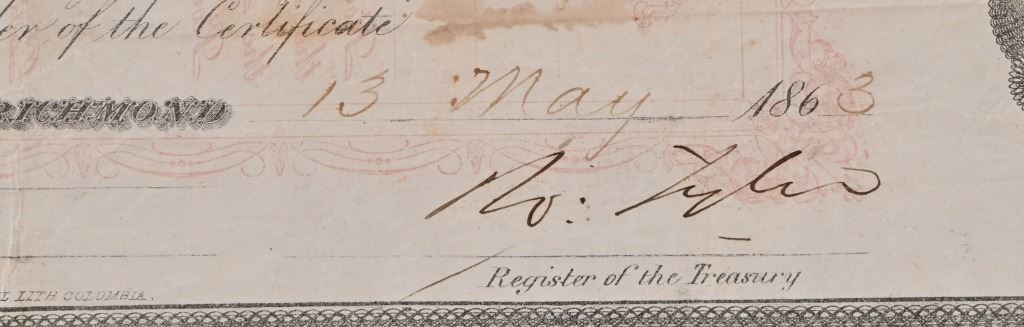 er of the Certificate
RICHMOND 13 May 1863
Ro: Tyler
Register of the Treasury
LITH COLUMBIA.